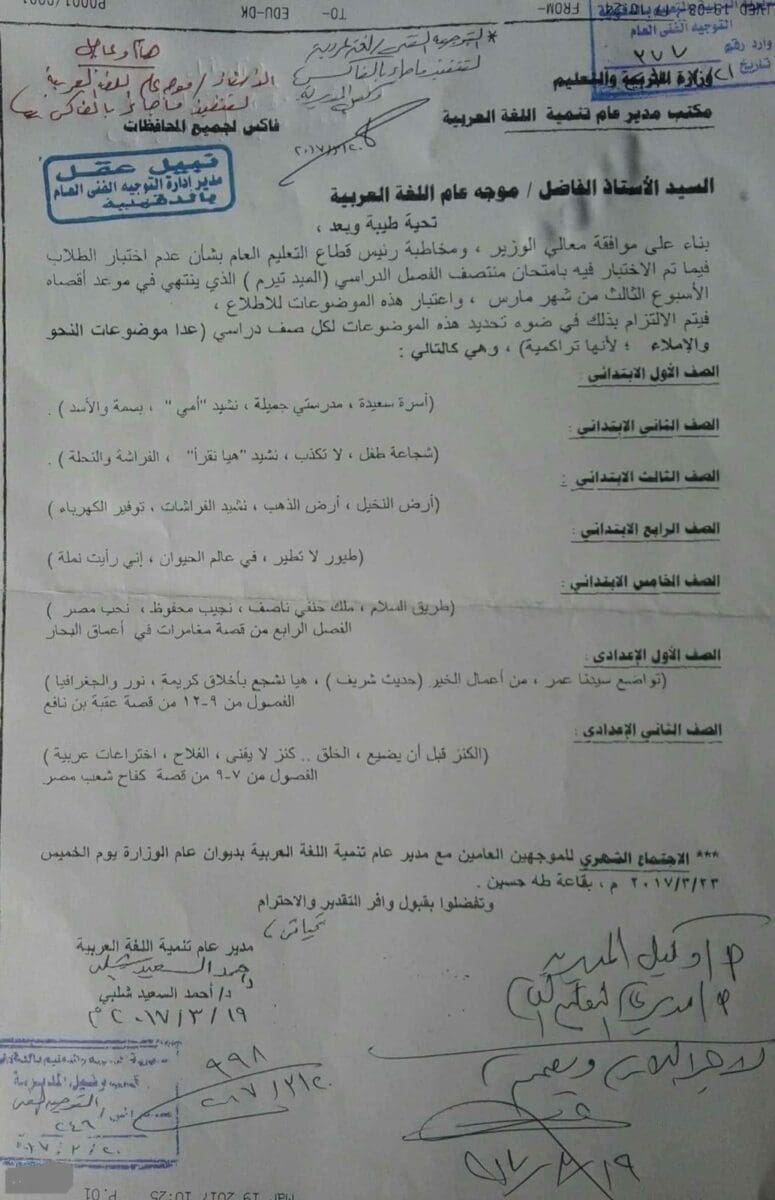 P0001/0001
TO- EDU-DK
FROM-
التوجيه الفنى العام
وارد رقم ٣٧٧
تاريخ
هام وعاجل
الأستاذ / موجه عام اللغة العربية
لتنفيذ ما جاء بالفاكس
وزارة التربية والتعليم
مكتب مدير عام تنمية اللغة العربية
فاكس لجميع المحافظات
نبيل عقل
مدير إدارة التوجيه الفنى العام
بالدقهلية
السيد الأستاذ الفاضل / موجه عام اللغة العربية
تحية طيبة وبعد ،
بناء على موافقة معالي الوزير ، ومخاطبة رئيس قطاع التعليم العام بشأن عدم اختبار الطلاب
فيما تم الاختبار فيه بامتحان منتصف الفصل الدراسي (الميد تيرم ) الذي ينتهي في موعد أقصاه
الأسبوع الثالث من شهر مارس ، واعتبار هذه الموضوعات للاطلاع ،
فيتم الالتزام بذلك في ضوء تحديد هذه الموضوعات لكل صف دراسي (عدا موضوعات النحو
والإملاء ؛ لأنها تراكمية) ، وهي كالتالي :
الصف الأول الابتدائى :
(أسرة سعيدة ، مدرستي جميلة ، نشيد "أمي" ، بسمة والأسد ) .
الصف الثاني الابتدائي :
(شجاعة طفل ، لا تكذب ، نشيد "هيا نقرأ" ، الفراشة والنحلة ) .
الصف الثالث الابتدائي :
(أرض النخيل ، أرض الذهب ، نشيد الفراشات ، توفير الكهرباء )
الصف الرابع الابتدائي :
(طيور لا تطير ، في عالم الحيوان ، إني رأيت نملة )
الصف الخامس الابتدائي :
(طريق السلام ، ملك حفني ناصف ، نجيب محفوظ ، نحب مصر )
الفصل الرابع من قصة مغامرات في أعماق البحار
الصف الأول الإعدادى :
(تواضع سيدنا عمر ، من أعمال الخير (حديث شريف ) ، هيا نشجع بأخلاق كريمة ، نور والجغرافيا )
الفصول من ٩-١٢ من قصة عقبة بن نافع
الصف الثاني الإعدادى :
(الكنز قبل أن يضيع ، الخلق .. كنز لا يفنى ، الفلاح ، اختراعات عربية )
الفصول من ٧-٩ من قصة كفاح شعب مصر
*** الاجتماع الشهري للموجهين العامين مع مدير عام تنمية اللغة العربية بديوان عام الوزارة يوم الخميس
٢٠١٧/٣/٢٣ م ، بقاعة طه حسين .
وتفضلوا بقبول وافر التقدير والاحترام
مدير عام تنمية اللغة العربية
د/ أحمد السعيد شلبي
٢٠١٧/٣/١٩ م
٩٩٨
أ/ وكيل المديرية
أ/ مدير عام التعليم العام
٢٤٦
Mar 19 2017 10:25 P.01